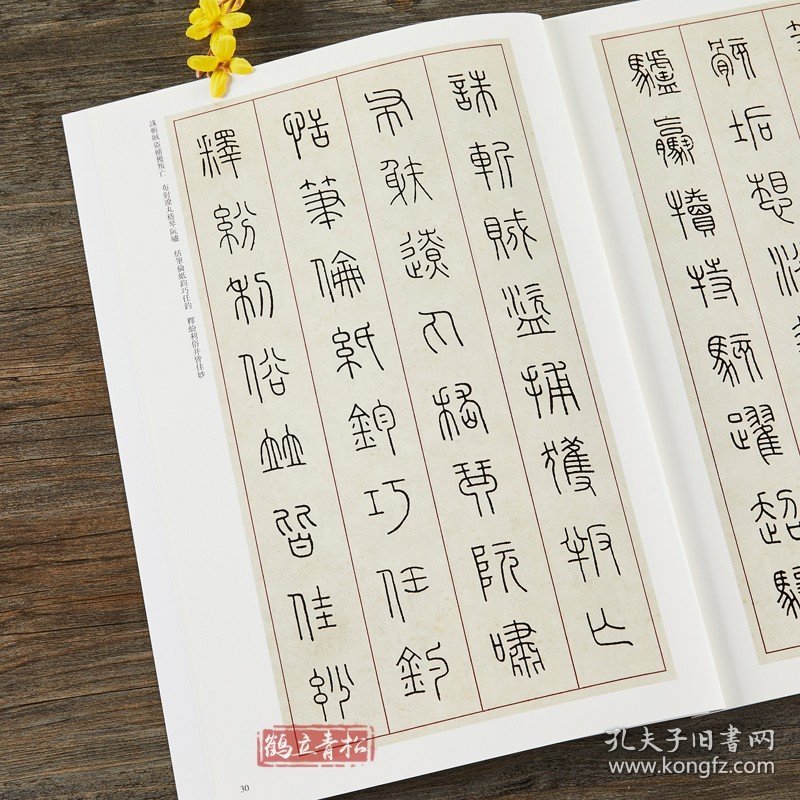 骸垢想浴
驢騾犢特駭躍超驤
誅斬賊盜捕獲叛亡
布射遼丸嵇琴阮嘯
恬筆倫紙鈞巧任釣
釋紛利俗並皆佳妙
誅斬賊盜捕獲叛亡　布射遼丸嵇琴阮嘯　恬筆倫紙鈞巧任釣　釋紛利俗并皆佳妙
30
鹤立青松
孔夫子旧書网
www.kongfz.com